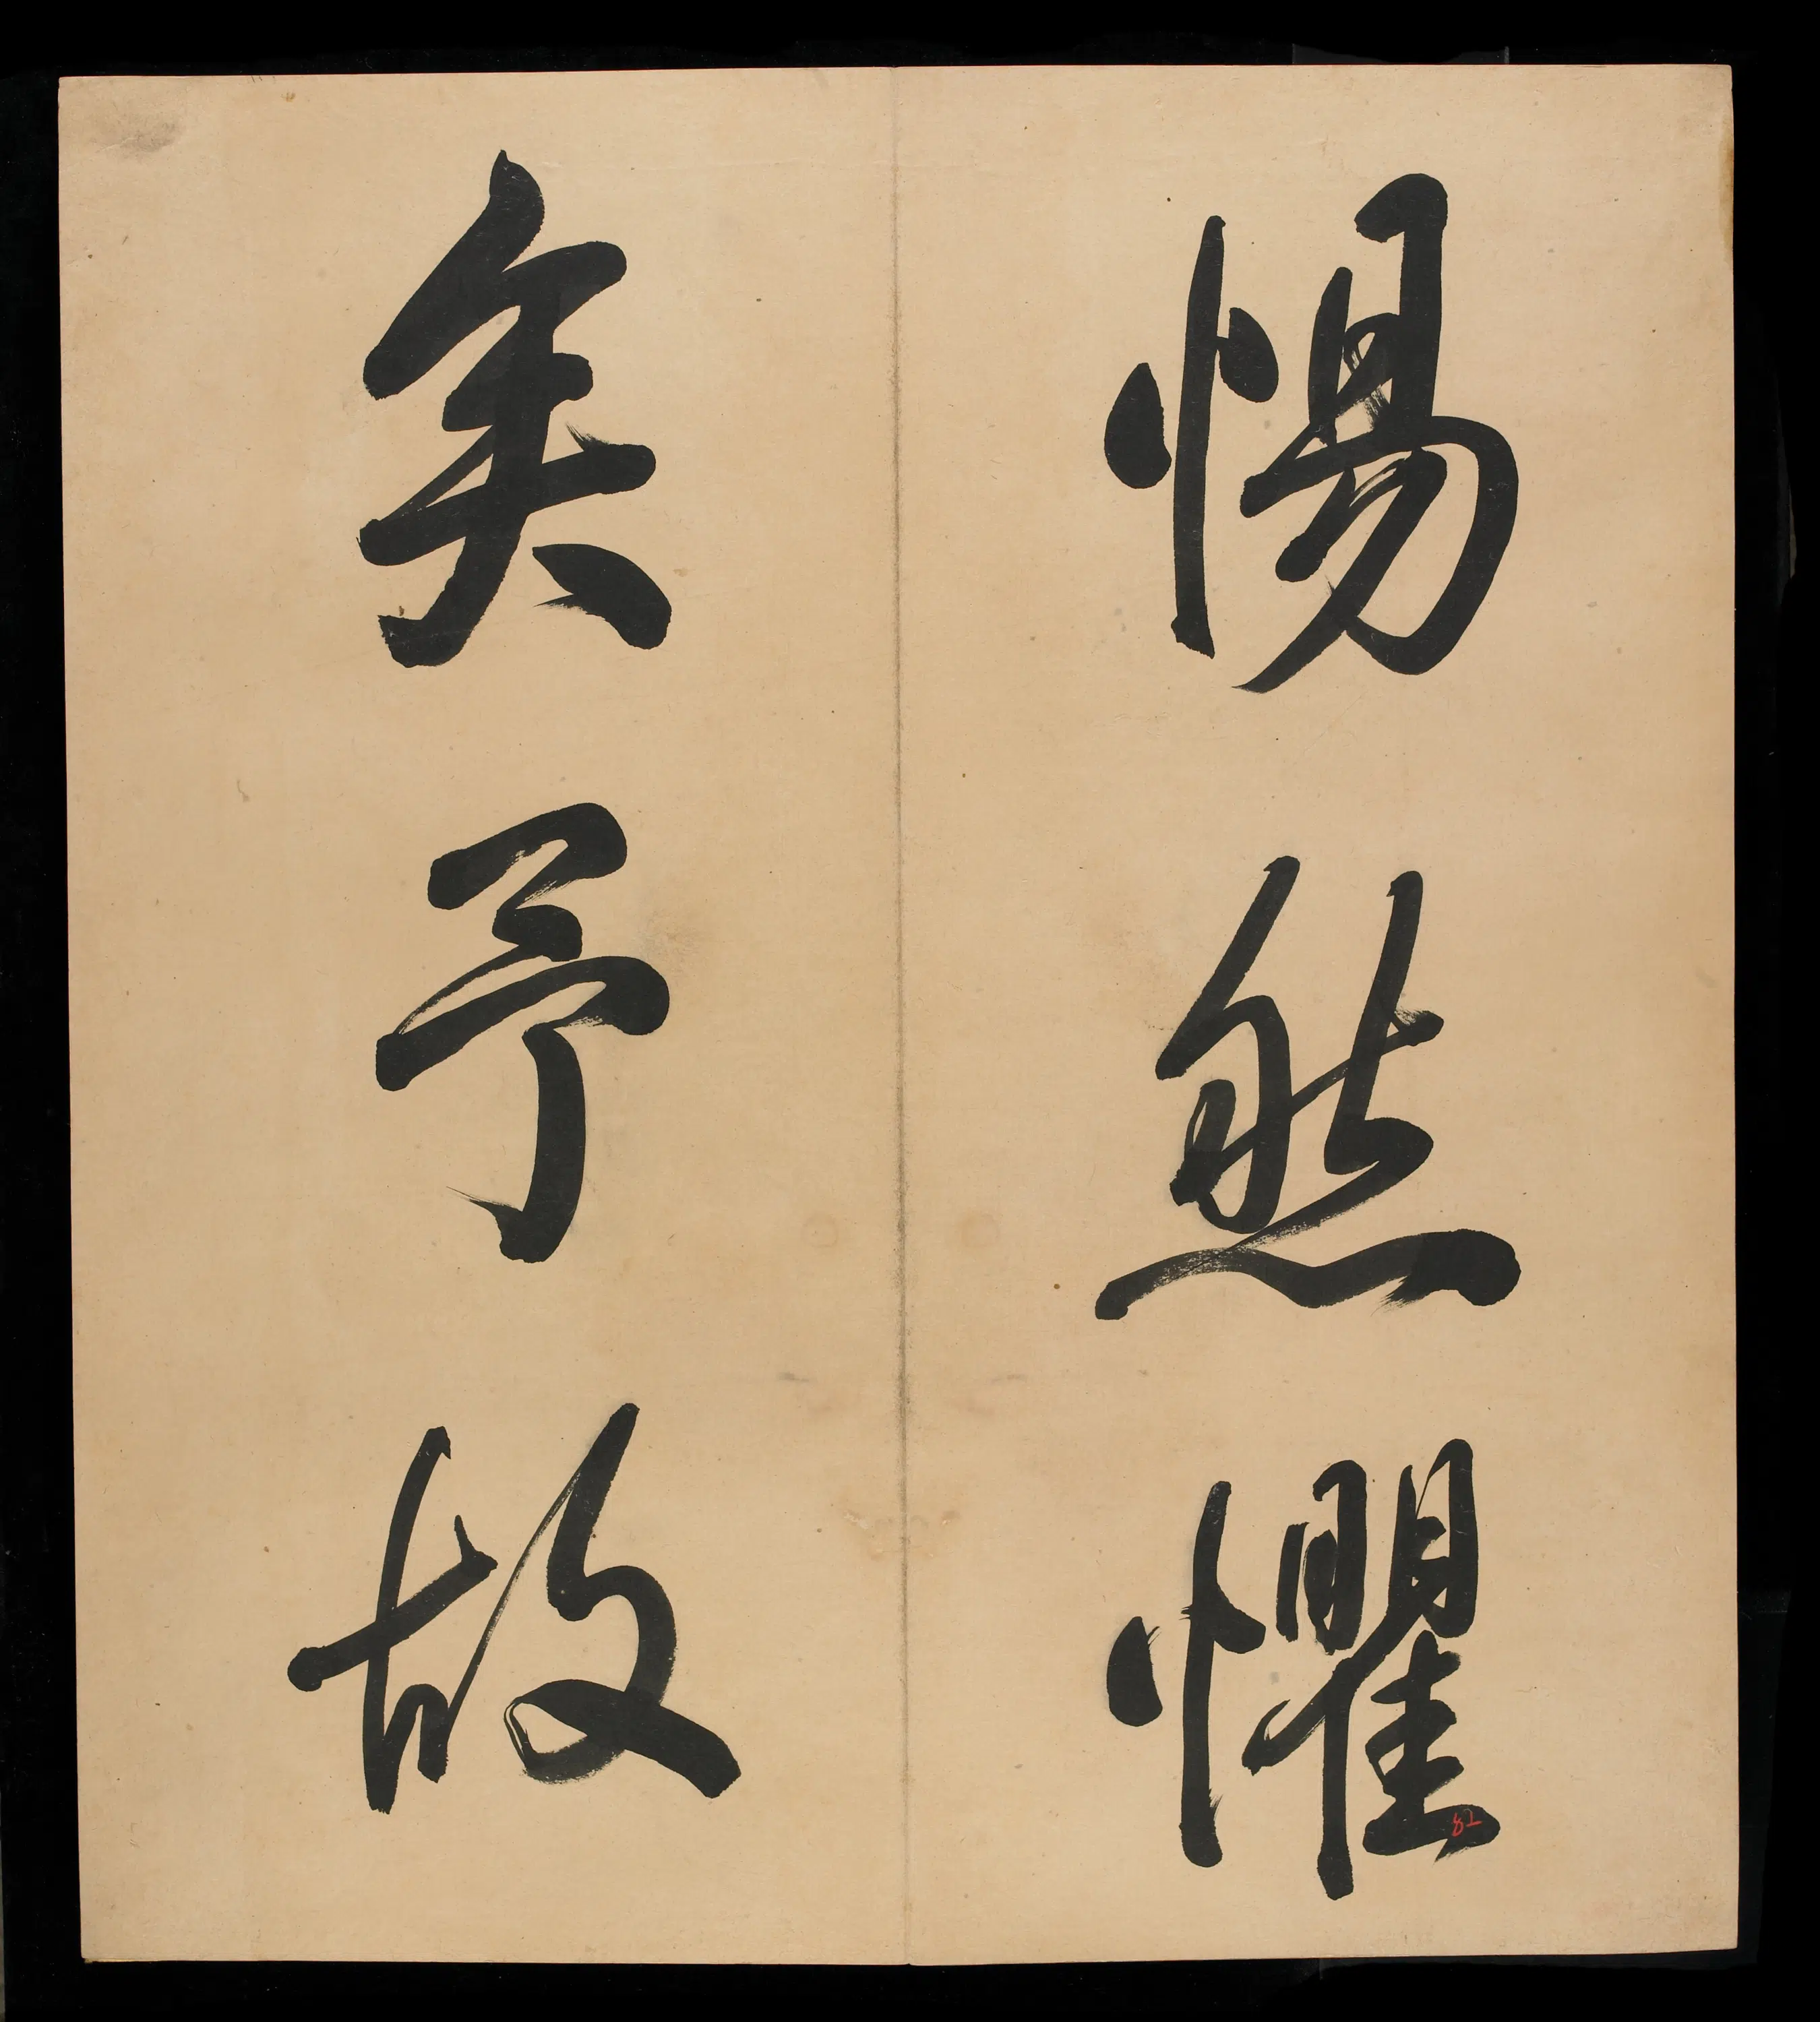 惕然懼
矣予故
82